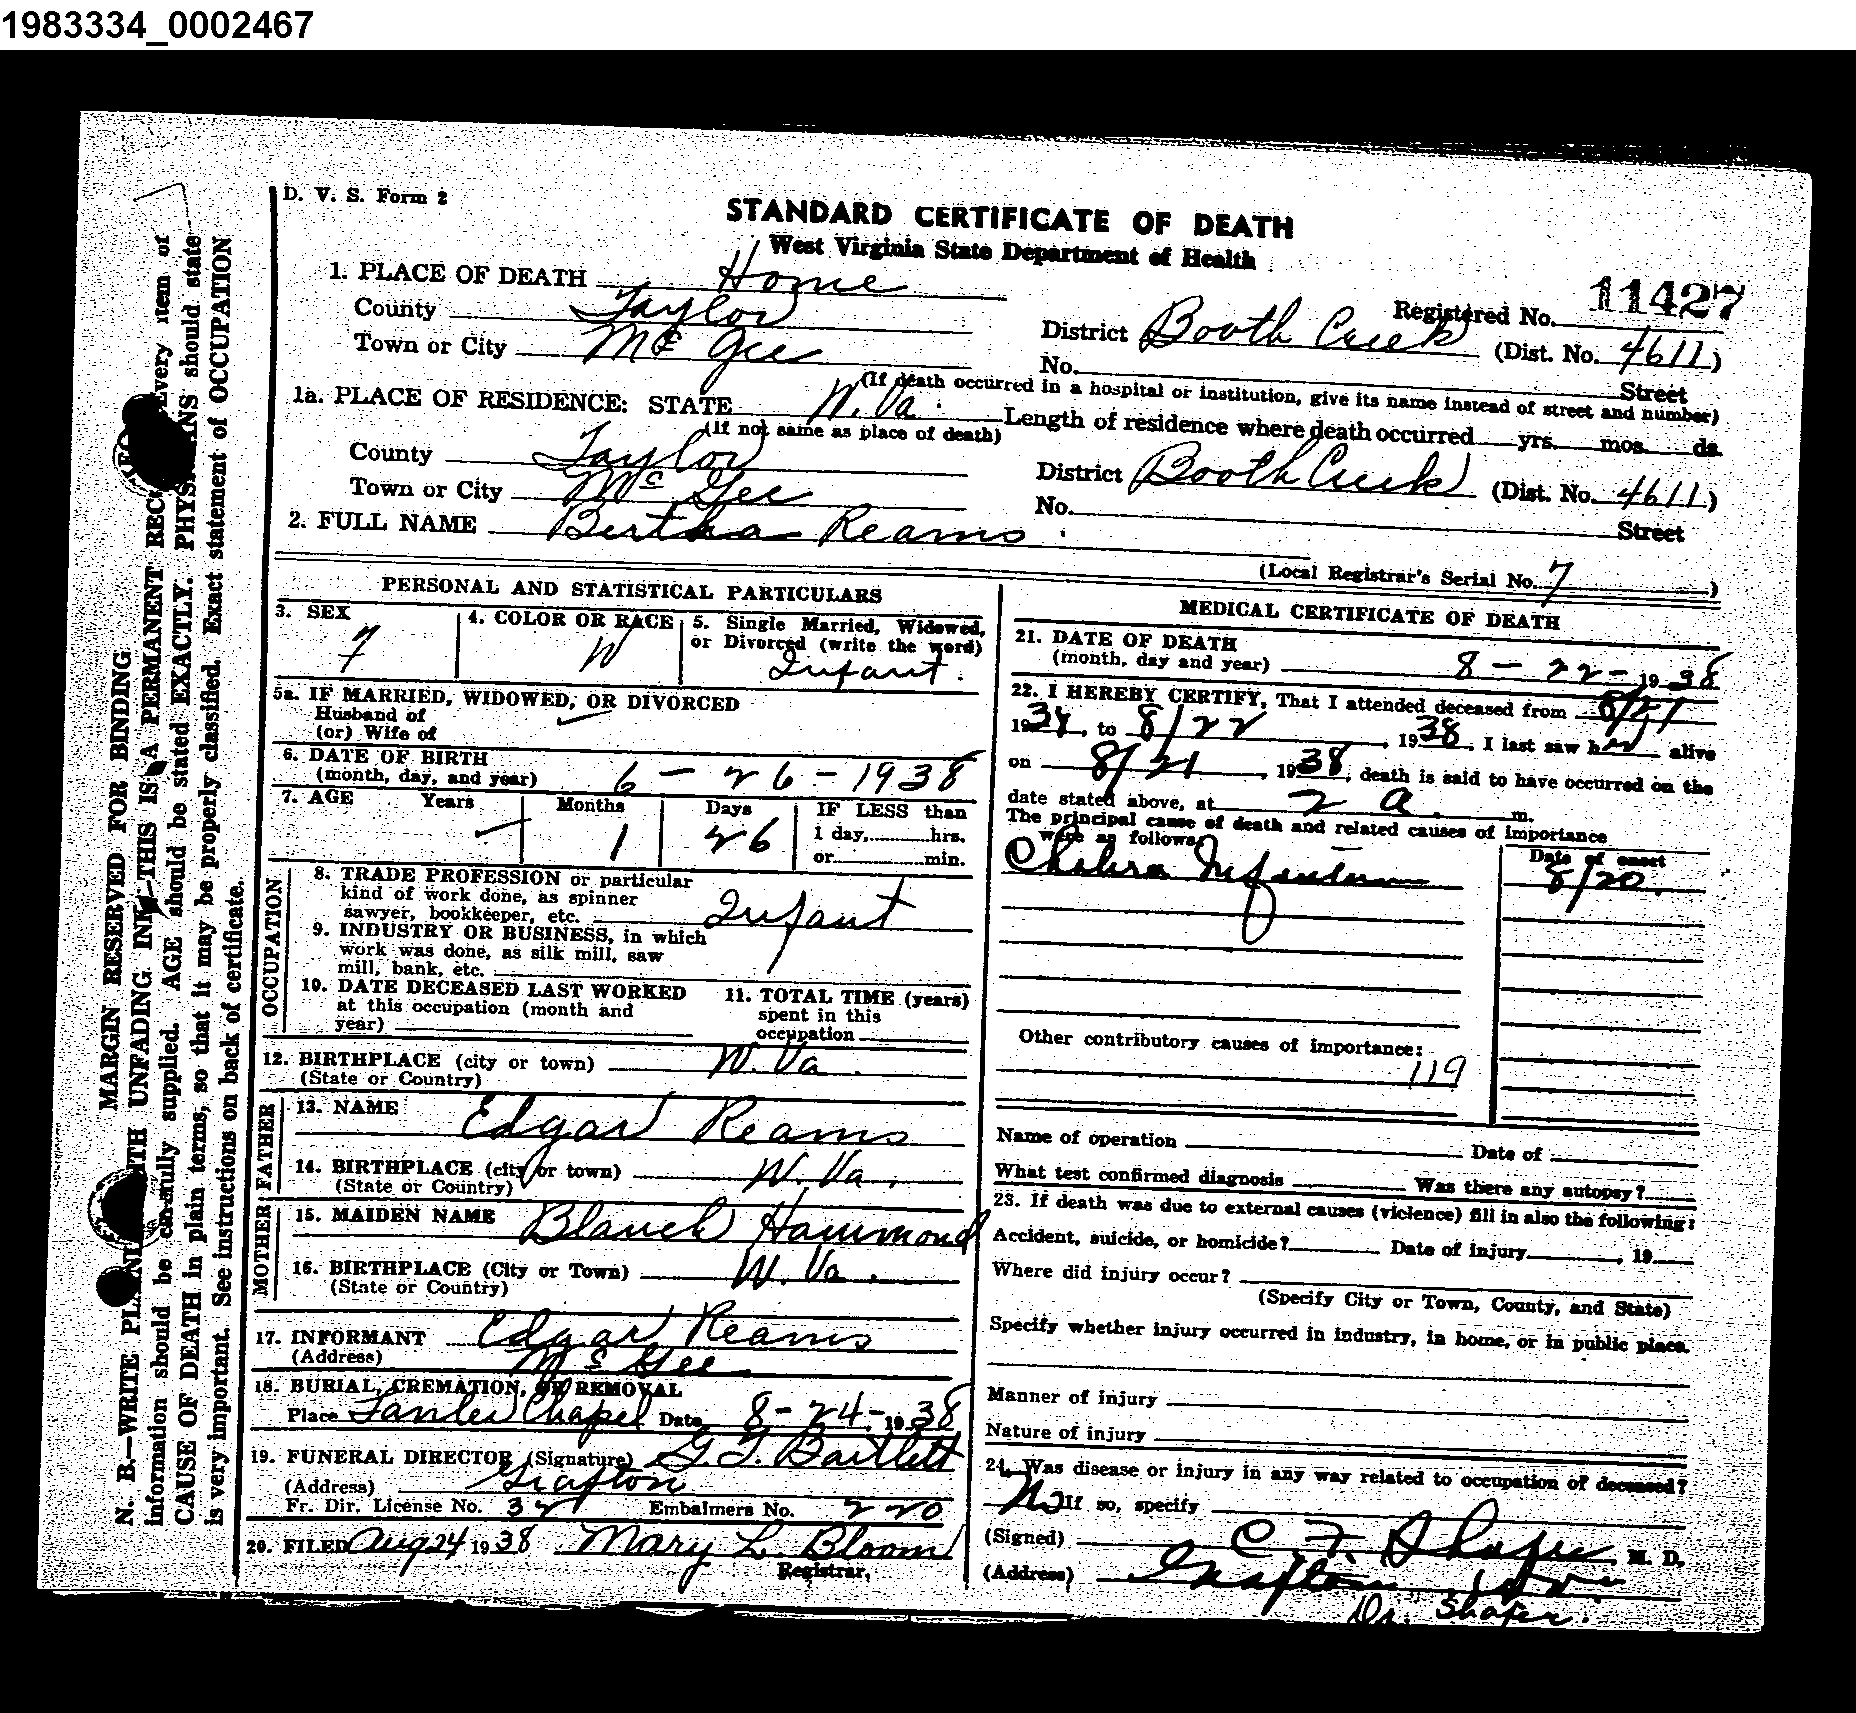 1983334_0002467
D. V. S. Form 2
STANDARD CERTIFICATE OF DEATH
West Virginia State Department of Health
1. PLACE OF DEATH Home
Registered No. 11427
County Taylor
District Booth Creek (Dist. No. 4611)
Town or City Mc Gee
No. Street
(If death occurred in a hospital or institution, give its name instead of street and number)
1a. PLACE OF RESIDENCE: STATE W. Va.
(If not same as place of death)
Length of residence where death occurred yrs. mos. ds.
County Taylor
District Booth Creek (Dist. No. 4611)
Town or City Mc Gee
No. Street
2. FULL NAME Bertha Reams
(Local Registrar's Serial No. 7 )
PERSONAL AND STATISTICAL PARTICULARS
3. SEX
F
4. COLOR OR RACE
W
5. Single Married, Widowed,
or Divorced (write the word)
Infant.
5a. IF MARRIED, WIDOWED, OR DIVORCED
Husband of
(or) Wife of
6. DATE OF BIRTH
(month, day, and year) 6 - 26 - 1938
7. AGE Years Months Days IF LESS than
1 26
1 day, hrs.
or min.
OCCUPATION
8. TRADE PROFESSION or particular
kind of work done, as spinner
sawyer, bookkeeper, etc. Infant
9. INDUSTRY OR BUSINESS, in which
work was done, as silk mill, saw
mill, bank, etc.
10. DATE DECEASED LAST WORKED
at this occupation (month and
year)
11. TOTAL TIME (years)
spent in this
occupation
12. BIRTHPLACE (city or town) W. Va.
(State or Country)
FATHER
13. NAME Edgar Reams
14. BIRTHPLACE (city or town) W. Va.
(State or Country)
MOTHER
15. MAIDEN NAME Blanch Hammond
16. BIRTHPLACE (City or Town) W. Va.
(State or Country)
17. INFORMANT Edgar Reams
(Address) Mc Gee
18. BURIAL, CREMATION, OR REMOVAL
Place Chapel Date 8-24-1938
19. FUNERAL DIRECTOR (Signature) G. T. Bartlett
(Address) Grafton
Fr. Dir. License No. Embalmers No. 220
20. FILED Aug 24 1938 Mary L. Bloom
Registrar.
MEDICAL CERTIFICATE OF DEATH
21. DATE OF DEATH
(month, day and year) 8 - 22 - 1938
22. I HEREBY CERTIFY, That I attended deceased from 8/21
1938, to 8/22, 1938, I last saw her alive
on 8/21, 1938, death is said to have occurred on the
date stated above, at 2 a. m.
The principal cause of death and related causes of importance
were as follows:
Date of onset
Cholera Infantum 8/20.
Other contributory causes of importance:
119
Name of operation Date of
What test confirmed diagnosis Was there any autopsy?
23. If death was due to external causes (violence) fill in also the following:
Accident, suicide, or homicide? Date of injury , 19
Where did injury occur?
(Specify City or Town, County, and State)
Specify whether injury occurred in industry, in home, or in public place.
Manner of injury
Nature of injury
24. Was disease or injury in any way related to occupation of deceased?
No If so, specify
(Signed) C. F. Shafer M. D.
(Address) Grafton W. Va.
Dr. Shafer.
MARGIN RESERVED FOR BINDING
N. B.—WRITE UNFADING INK—THIS IS A PERMANENT Every item of
information should be carefully supplied. AGE should be stated EXACTLY. should state
CAUSE OF DEATH in plain terms, so that it may be properly classified. Exact statement of OCCUPATION
is very important. See instructions on back of certificate.